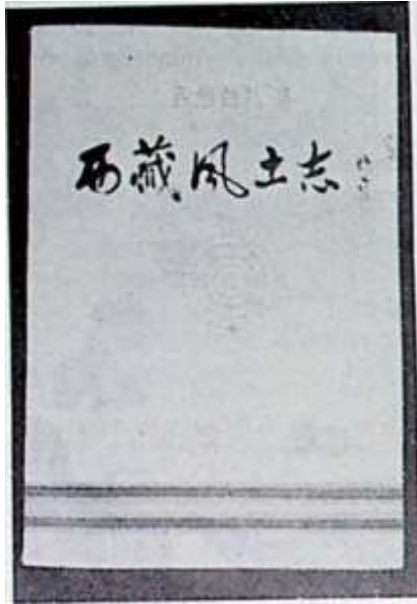 西藏风土志